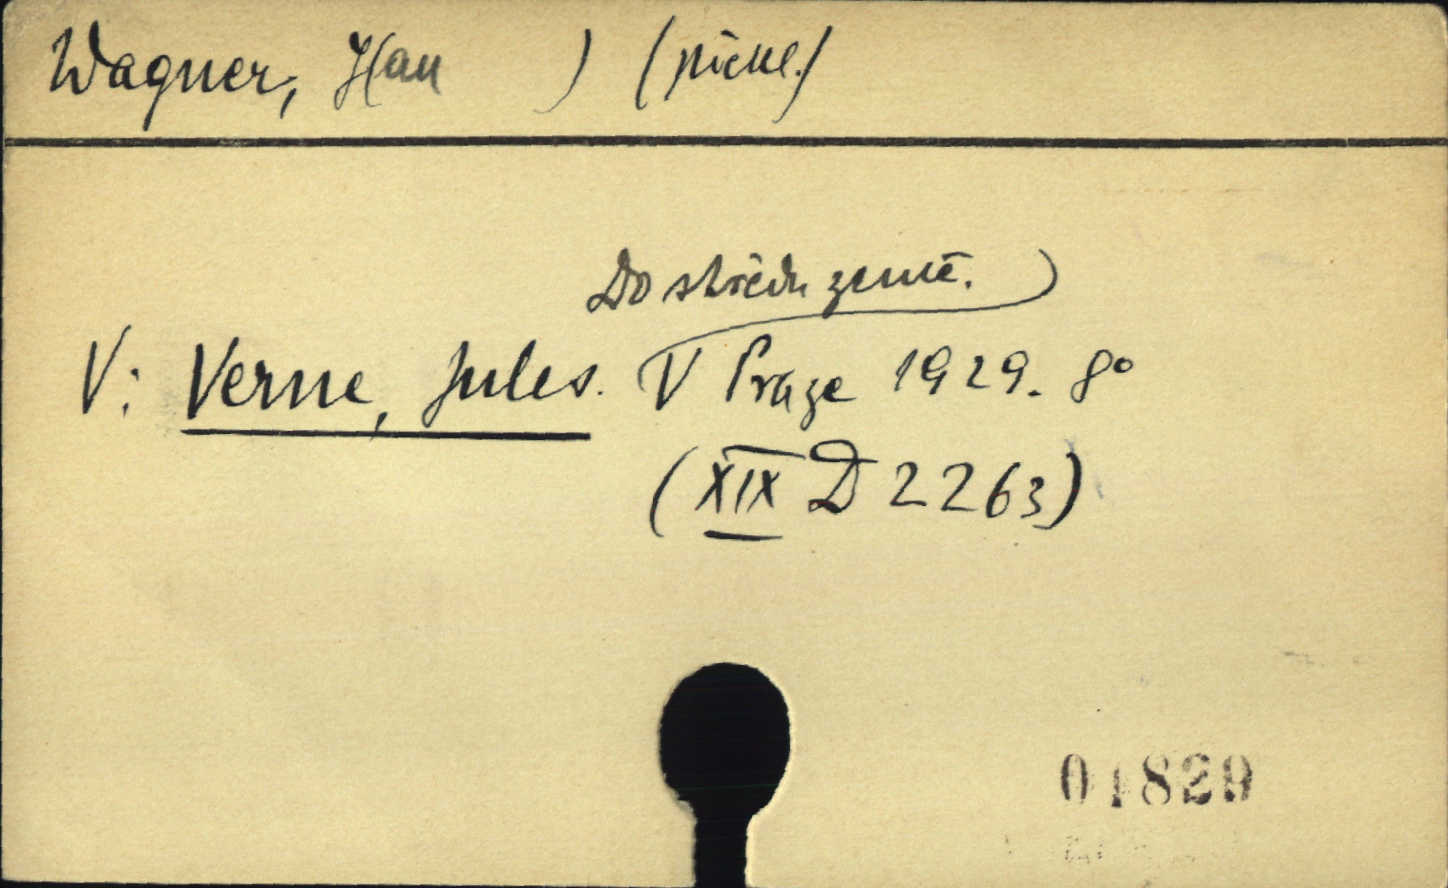 Wagner, J(an ) (překl.)
Do středu země.
V: Verne, Jules. V Praze 1929. 8°
(XIX D 2263)
01829